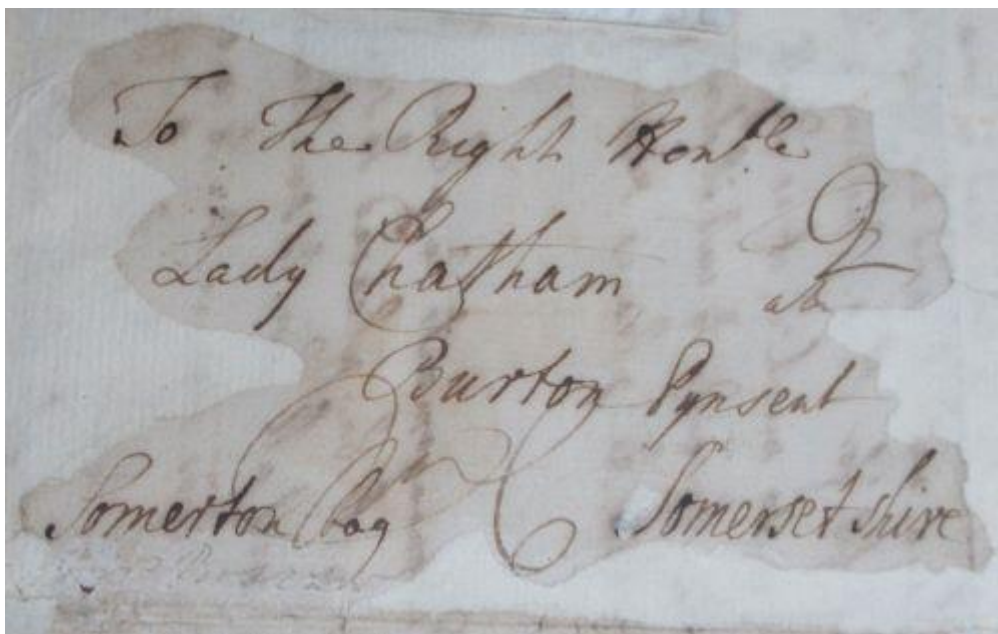 To The Right Honble
Lady Chatham
at
Burton Pynsent
Somerton Bag Somersetshire